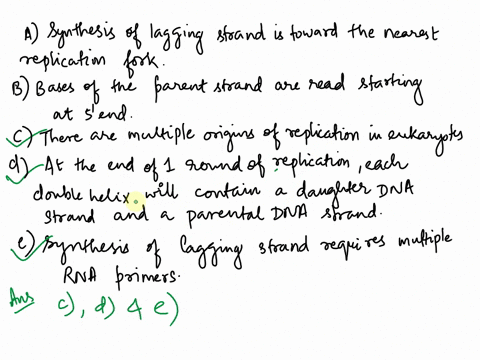 A) Synthesis of lagging strand is toward the nearest
replication fork.
B) Bases of the parent strand are read starting
at 5' end.
c) There are multiple origins of replication in eukaryotes
d) At the end of 1 round of replication, each
double helix will contain a daughter DNA
strand and a parental DNA strand.
e) Synthesis of lagging strand requires multiple
RNA primers.
Ans c), d) & e)